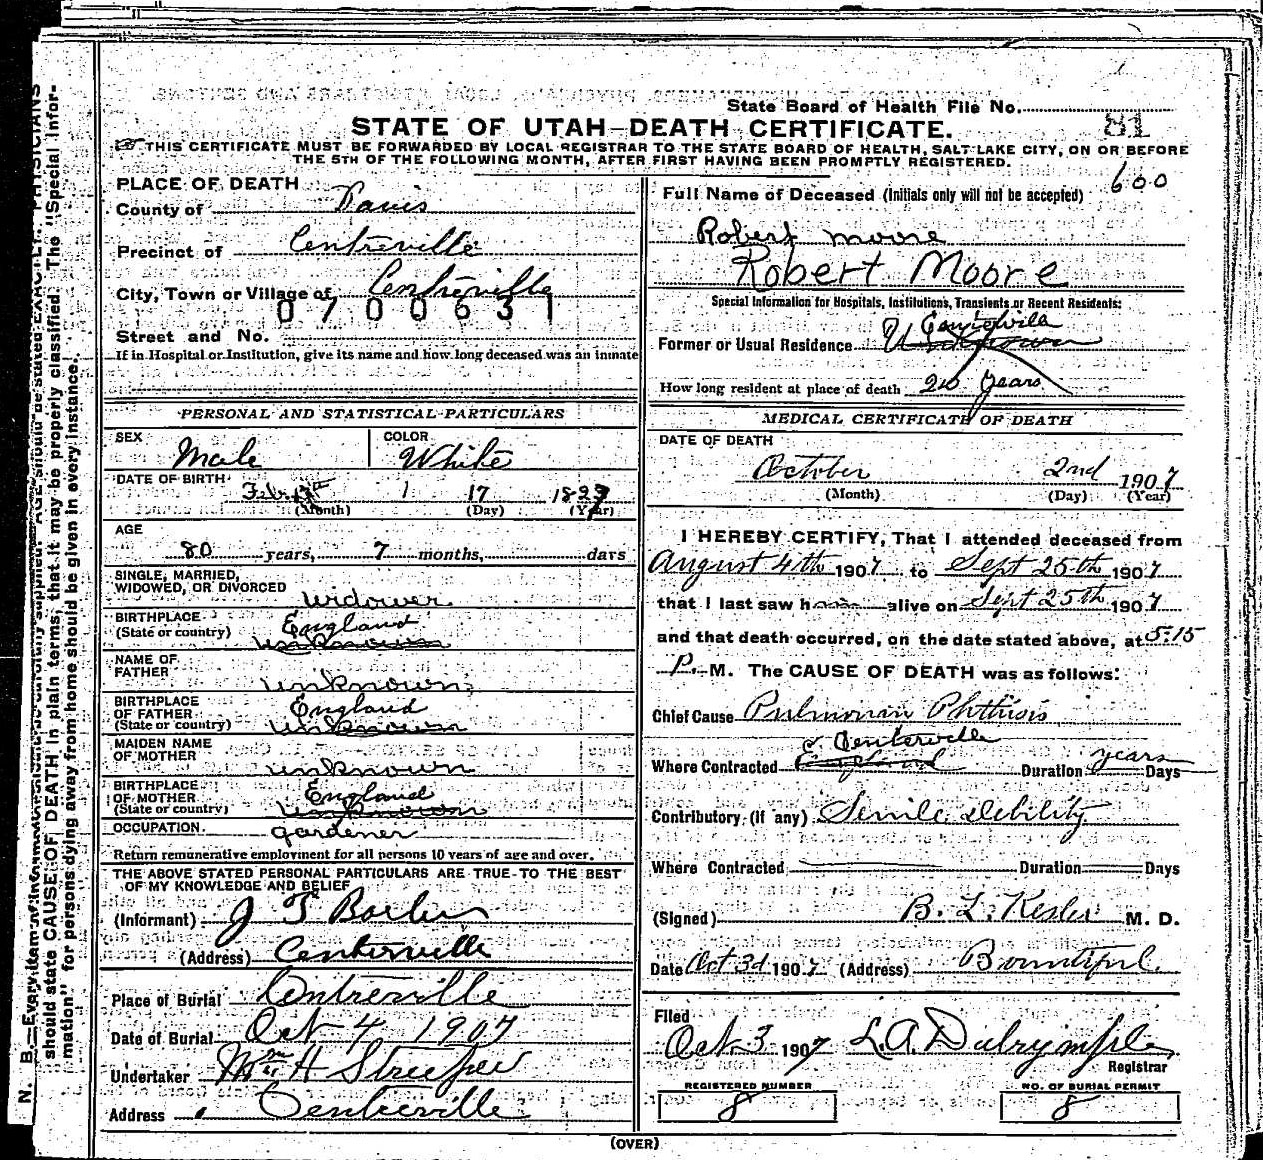 State Board of Health File No.
81
STATE OF UTAH—DEATH CERTIFICATE.
THIS CERTIFICATE MUST BE FORWARDED BY LOCAL REGISTRAR TO THE STATE BOARD OF HEALTH, SALT LAKE CITY, ON OR BEFORE
THE 5TH OF THE FOLLOWING MONTH, AFTER FIRST HAVING BEEN PROMPTLY REGISTERED.
600
PLACE OF DEATH
County of Davis
Precinct of Centreville
City, Town or Village of Centreville
0700631
Street and No.
If in Hospital or Institution, give its name and how long deceased was an inmate
PERSONAL AND STATISTICAL PARTICULARS
SEX Male
COLOR White
DATE OF BIRTH Feb. 17th 1 17
(Month) (Day) (Year)
AGE
80 years, 7 months, days
SINGLE, MARRIED,
WIDOWED, OR DIVORCED Widower
BIRTHPLACE England
(State or country) Unknown
NAME OF
FATHER Unknown
BIRTHPLACE
OF FATHER England
(State or country) Unknown
MAIDEN NAME
OF MOTHER Unknown
BIRTHPLACE
OF MOTHER England
(State or country) Unknown
OCCUPATION gardener
Return remunerative employment for all persons 10 years of age and over.
THE ABOVE STATED PERSONAL PARTICULARS ARE TRUE TO THE BEST
OF MY KNOWLEDGE AND BELIEF
(Informant) J T
(Address) Centerville
Place of Burial Centreville
Date of Burial Oct 4 1907
Undertaker Wm H Streeper
Address Centerville
Full Name of Deceased (Initials only will not be accepted)
Robert Moore
Robert Moore
Special Information for Hospitals, Institutions, Transients or Recent Residents:
Centerville
Former or Usual Residence Unknown
How long resident at place of death 20 years
MEDICAL CERTIFICATE OF DEATH
DATE OF DEATH
October 2nd 1907
(Month) (Day) (Year)
I HEREBY CERTIFY, That I attended deceased from
August 4th 1907 to Sept 25th 1907
that I last saw h alive on Sept 25th 1907
and that death occurred, on the date stated above, at 5:15
P. M. The CAUSE OF DEATH was as follows:
Chief Cause Pulmonary Phthisis
Centerville
Where Contracted England Duration years Days
Contributory (if any) Senile debility
Where Contracted Duration Days
(Signed) B. L. Kesler M. D.
Date Oct 3d 1907 (Address) Bountiful
Filed
Oct. 3 1907 L. A. Dalrymple
Registrar
REGISTERED NUMBER
8
NO. OF BURIAL PERMIT
8
(OVER)
should state CAUSE OF DEATH in plain terms, that it may be properly classified. The "Special Infor-
mation" for persons dying away from home should be given in every instance.